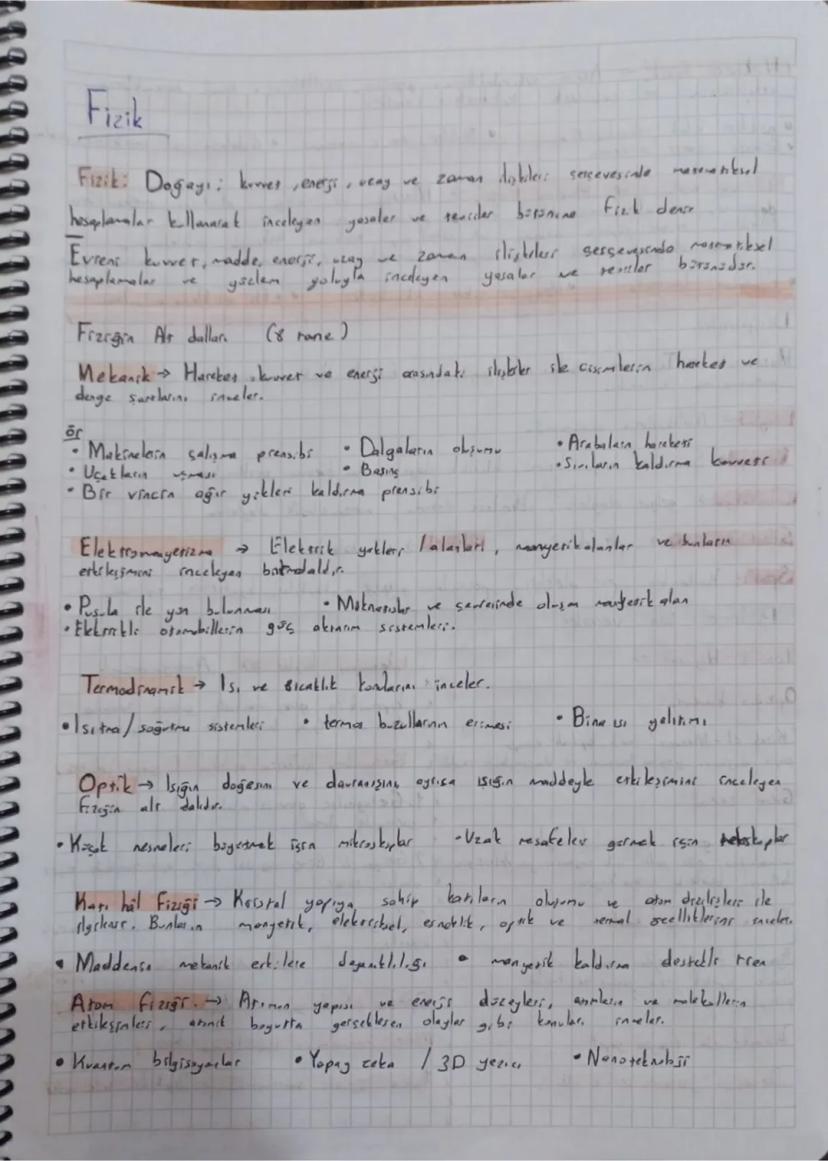 Fizik
Fizik: Doğayı; kuvvet, enerji, uzay ve zaman ilişkileri çerçevesinde matematiksel
hesaplamalar kullanarak inceleyen yasalar ve teoriler bütününe fizik denir
Evreni kuvvet, madde, enerji, uzay ve zaman ilişkileri çerçevesinde matematiksel
hesaplamalar ve gözlem yoluyla inceleyen yasalar ve teoriler bütünüdür.
Fiziğin Alt dalları (8 tane)
Mekanik → Hareket, kuvvet ve enerji arasındaki ilişkiler ile cisimlerin hareket ve
denge şartlarını inceler.
ör
• Makinelerin çalışma prensibi • Dalgaların oluşumu • Arabaların hareketi
• Uçakların uçması • Basınç • Sıvıların kaldırma kuvveti
• Bir vincin ağır yükleri kaldırma prensibi
Elektromanyetizma → Elektrik yükleri / alanları, manyetik alanlar ve bunların
etkileşimini inceleyen bilim dalıdır.
• Pusula ile yön bulunması • Mıknatıslar ve çevresinde oluşan manyetik alan
• Elektrikli otomobillerin güç aktarım sistemleri.
Termodinamik → Isı ve sıcaklık konularını inceler.
• Isıtma/soğutma sistemleri • termos buzullarının erimesi • Bina ısı yalıtımı
Optik → Işığın doğasını ve davranışını ayrıca ışığın maddeyle etkileşimini inceleyen
fiziğin alt dalıdır.
• Küçük nesneleri büyütmek için mikroskoplar • Uzak mesafeler görmek için teleskoplar
Katı hâl Fiziği → Kristal yapıya sahip katıların oluşumu ve atom dizilişleri ile
ilgilenir. Bunların manyetik, elektriksel, esneklik, optik ve termal özelliklerini inceler.
• Maddenin mekanik etkilere dayanıklılığı • manyetik kaldırma destekli tren
Atom fiziği → Atomun yapısı ve enerji düzeyleri, atomların ve moleküllerin
etkileşimleri, atomik boyutta gerçekleşen olaylar gibi konuları inceler.
• Kuantum bilgisayarlar • Yapay zeka / 3D yazıcı • Nanoteknoloji